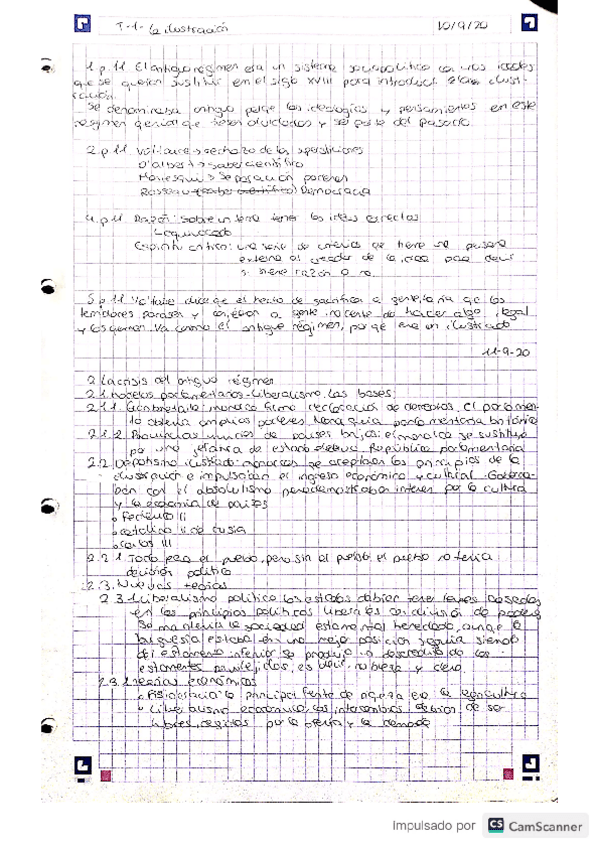 T-1- la ilustración 10/9/20
1 p.11. El antiguo régimen era un sistema sociopolítico con unas ideales
que se querían sustituir en el siglo XVIII para introducir
Se denominaba antiguo porque las ideologías y pensamientos en este
régimen que ser olvidados y ser parte del pasado.
2 p.11. Voltaire → rechazo de las supersticiones
D'albert → saber científico
Montesquiu → Separación poderes
Rosseau (saber científico) Democracia
4 p.11 Razón: sobre un tema tener las ideas correctas
equivocado
Espíritu crítico: una serie de criterios que tiene una persona
externa al creador de la idea para decir
si tiene razón o no.
5 p.11 Voltaire dice que el hecho de sacrificar a gente haría que los
temblores parasen y a gente inocente de hacer algo ilegal
y los queman. Va contra el antiguo régimen, porque era un ilustrado
11-9-20
2 La crisis del antiguo régimen
2.1 Modelos parlamentarios-Liberalismo, las bases:
2.1.1 Gran bretaña: monarca firma declaración de derechos. El parlamen-
to obtenía amplios poderes. Monarquía parlamentaria británica
2.1.2 Provincias unidas de países bajos: el monarca se sustituye
por una jefatura de estado electiva. República parlamentaria
2.2 Despotismo ilustrado: monarcas se aceptaban los principios de la
ilustración e impulsaron el económico y cultural. Goberna-
ban con el absolutismo pero demostraban interés por la cultura
y la economía de países
Federico II
catalina II de rusia
carlos III
2.2.1 Todo para el pueblo, pero sin el pueblo, el pueblo no tenía
decisión política
2.3. Nuevas teorías
2.3.1 Liberalismo político: los estados debían tener leyes basadas
en los principios políticos liberales con división de poderes
Se mantenía la sociedad estamental heredada, aunque la
burguesía estaba en una mejor posición seguía siendo
del estamento inferior. Se produjo un descrédito de los
estamentos privilegiados, es decir, nobleza y clero
2.3.2 Teorías económicas
Fisiocracia: la principal fuente de riqueza era la agricultura
Liberalismo económico: los intercambios debían de ser
libres, regidos por la oferta y la demanda
Impulsado por CS CamScanner